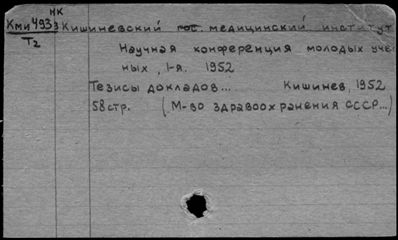 НК
Кми4933 Кишиневский гос. медицинский институт
Т2
Научная конференция молодых учё-
ных, 1-я. 1952
Тезисы докладов... Кишинев, 1952
58 стр. (М-во здравоохранения СССР...)